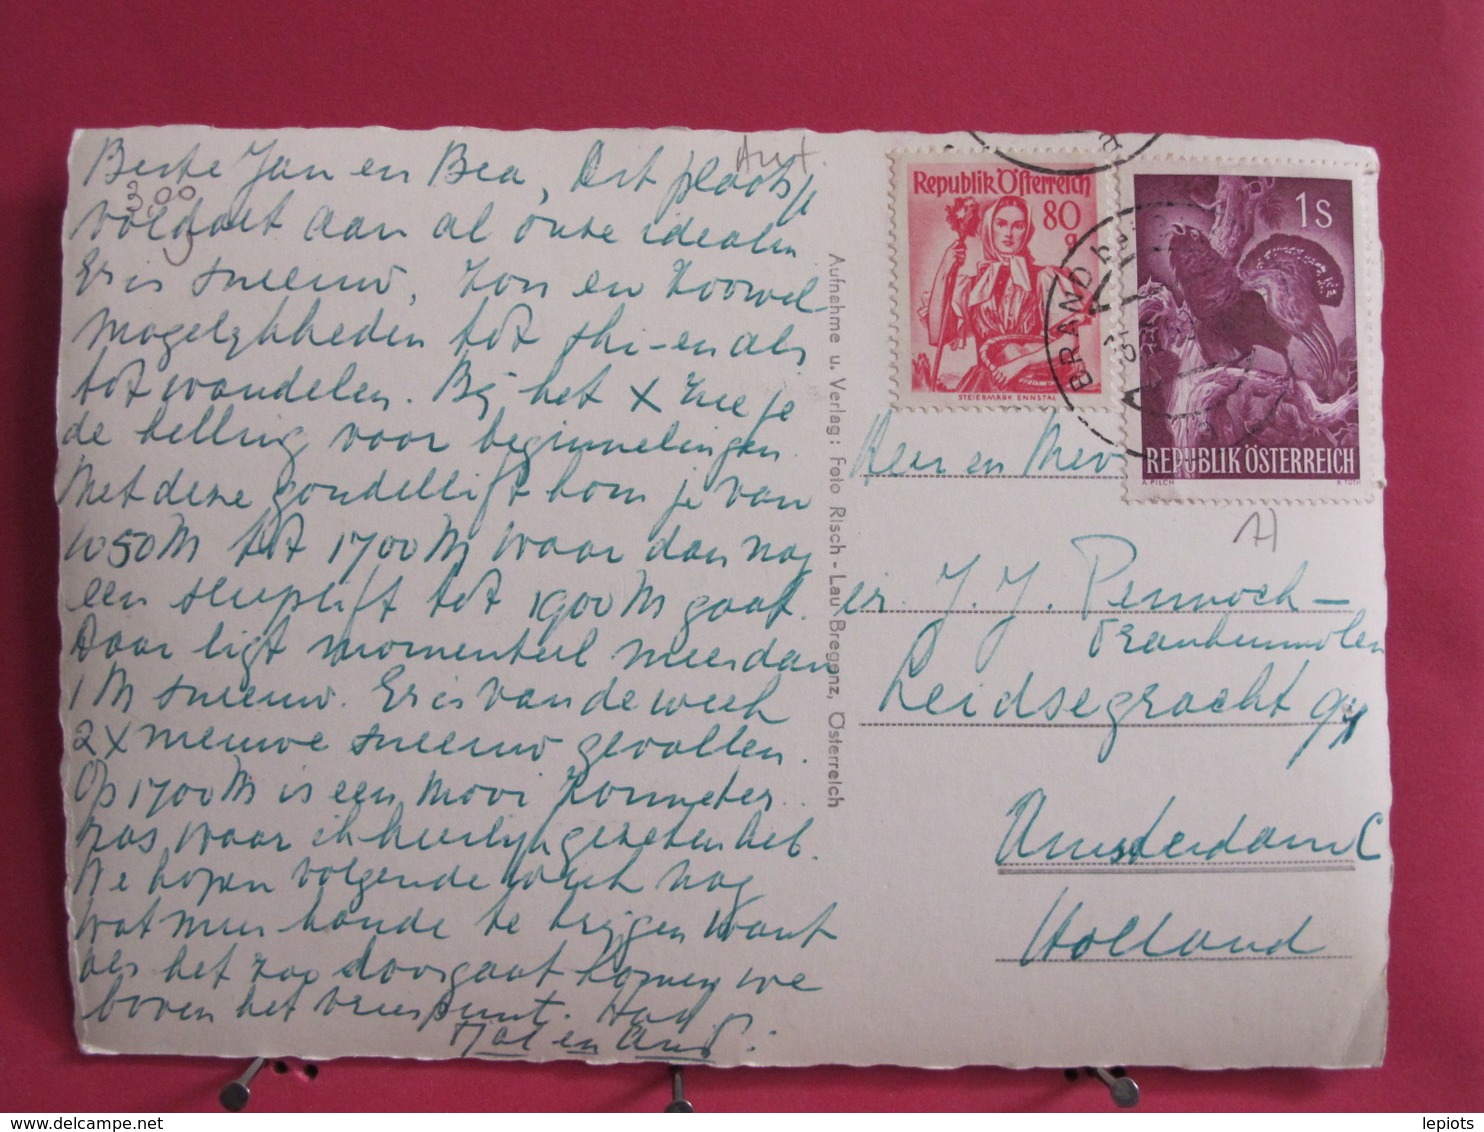 Beste Jan en Bea, Dit plaatsje
voldoet aan al onze idealen
Er is sneeuw, zon en zoowel
mogelijkheden tot ski-en als
tot wandelen. Bij het x zie je
de helling voor beginnelingen.
Met deze gondellift kom je van
1050 M tot 1700 M waar dan nog
een sleeplift tot 1900 M gaat.
Daar ligt momenteel meer dan
1 M sneeuw. Er is van de week
2x nieuwe sneeuw gevallen.
Op 1700 M is een mooi zonneter-
ras waar ik heerlijk gezeten heb.
We hopen volgende week nog
wat meer te krijgen want
als het zoo doorgaat komen we
boven het vriespunt.
en
Aut.
3,00
Aufnahme u. Verlag: Foto Risch-Lau Bregenz, Österreich
Republik Österreich
80
g
STEIERMARK ENNSTAL
1S
REPUBLIK ÖSTERREICH
A. PILCH R. TOTH
BRAND
Heer en Mev
J. J. Pennock-
Leidsegracht
Amsterdam C
Holland
lepiots
delcampe.net